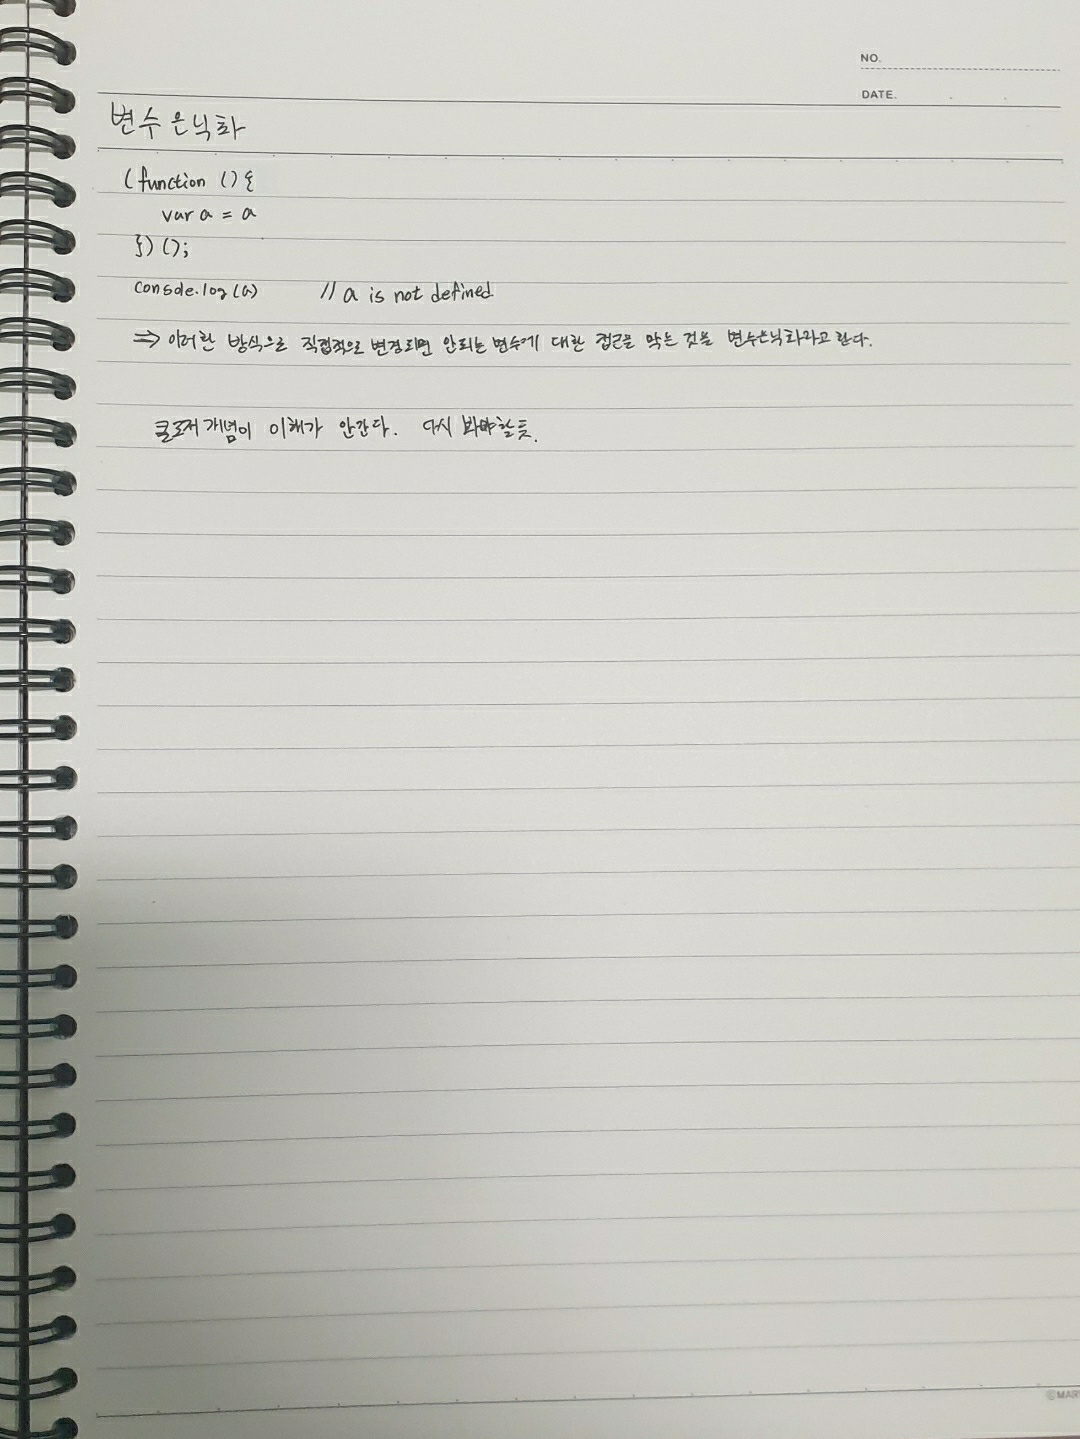 NO.
DATE.
변수 은닉화
(function () {
var a = a
}) ();
console.log(a) // a is not defined
⇒ 이러한 방식으로 직접적으로 변경되면 안되는 변수에 대한 접근을 막는 것을 변수은닉화라고 한다.
클로저 개념이 이해가 안간다. 다시 봐야할듯.